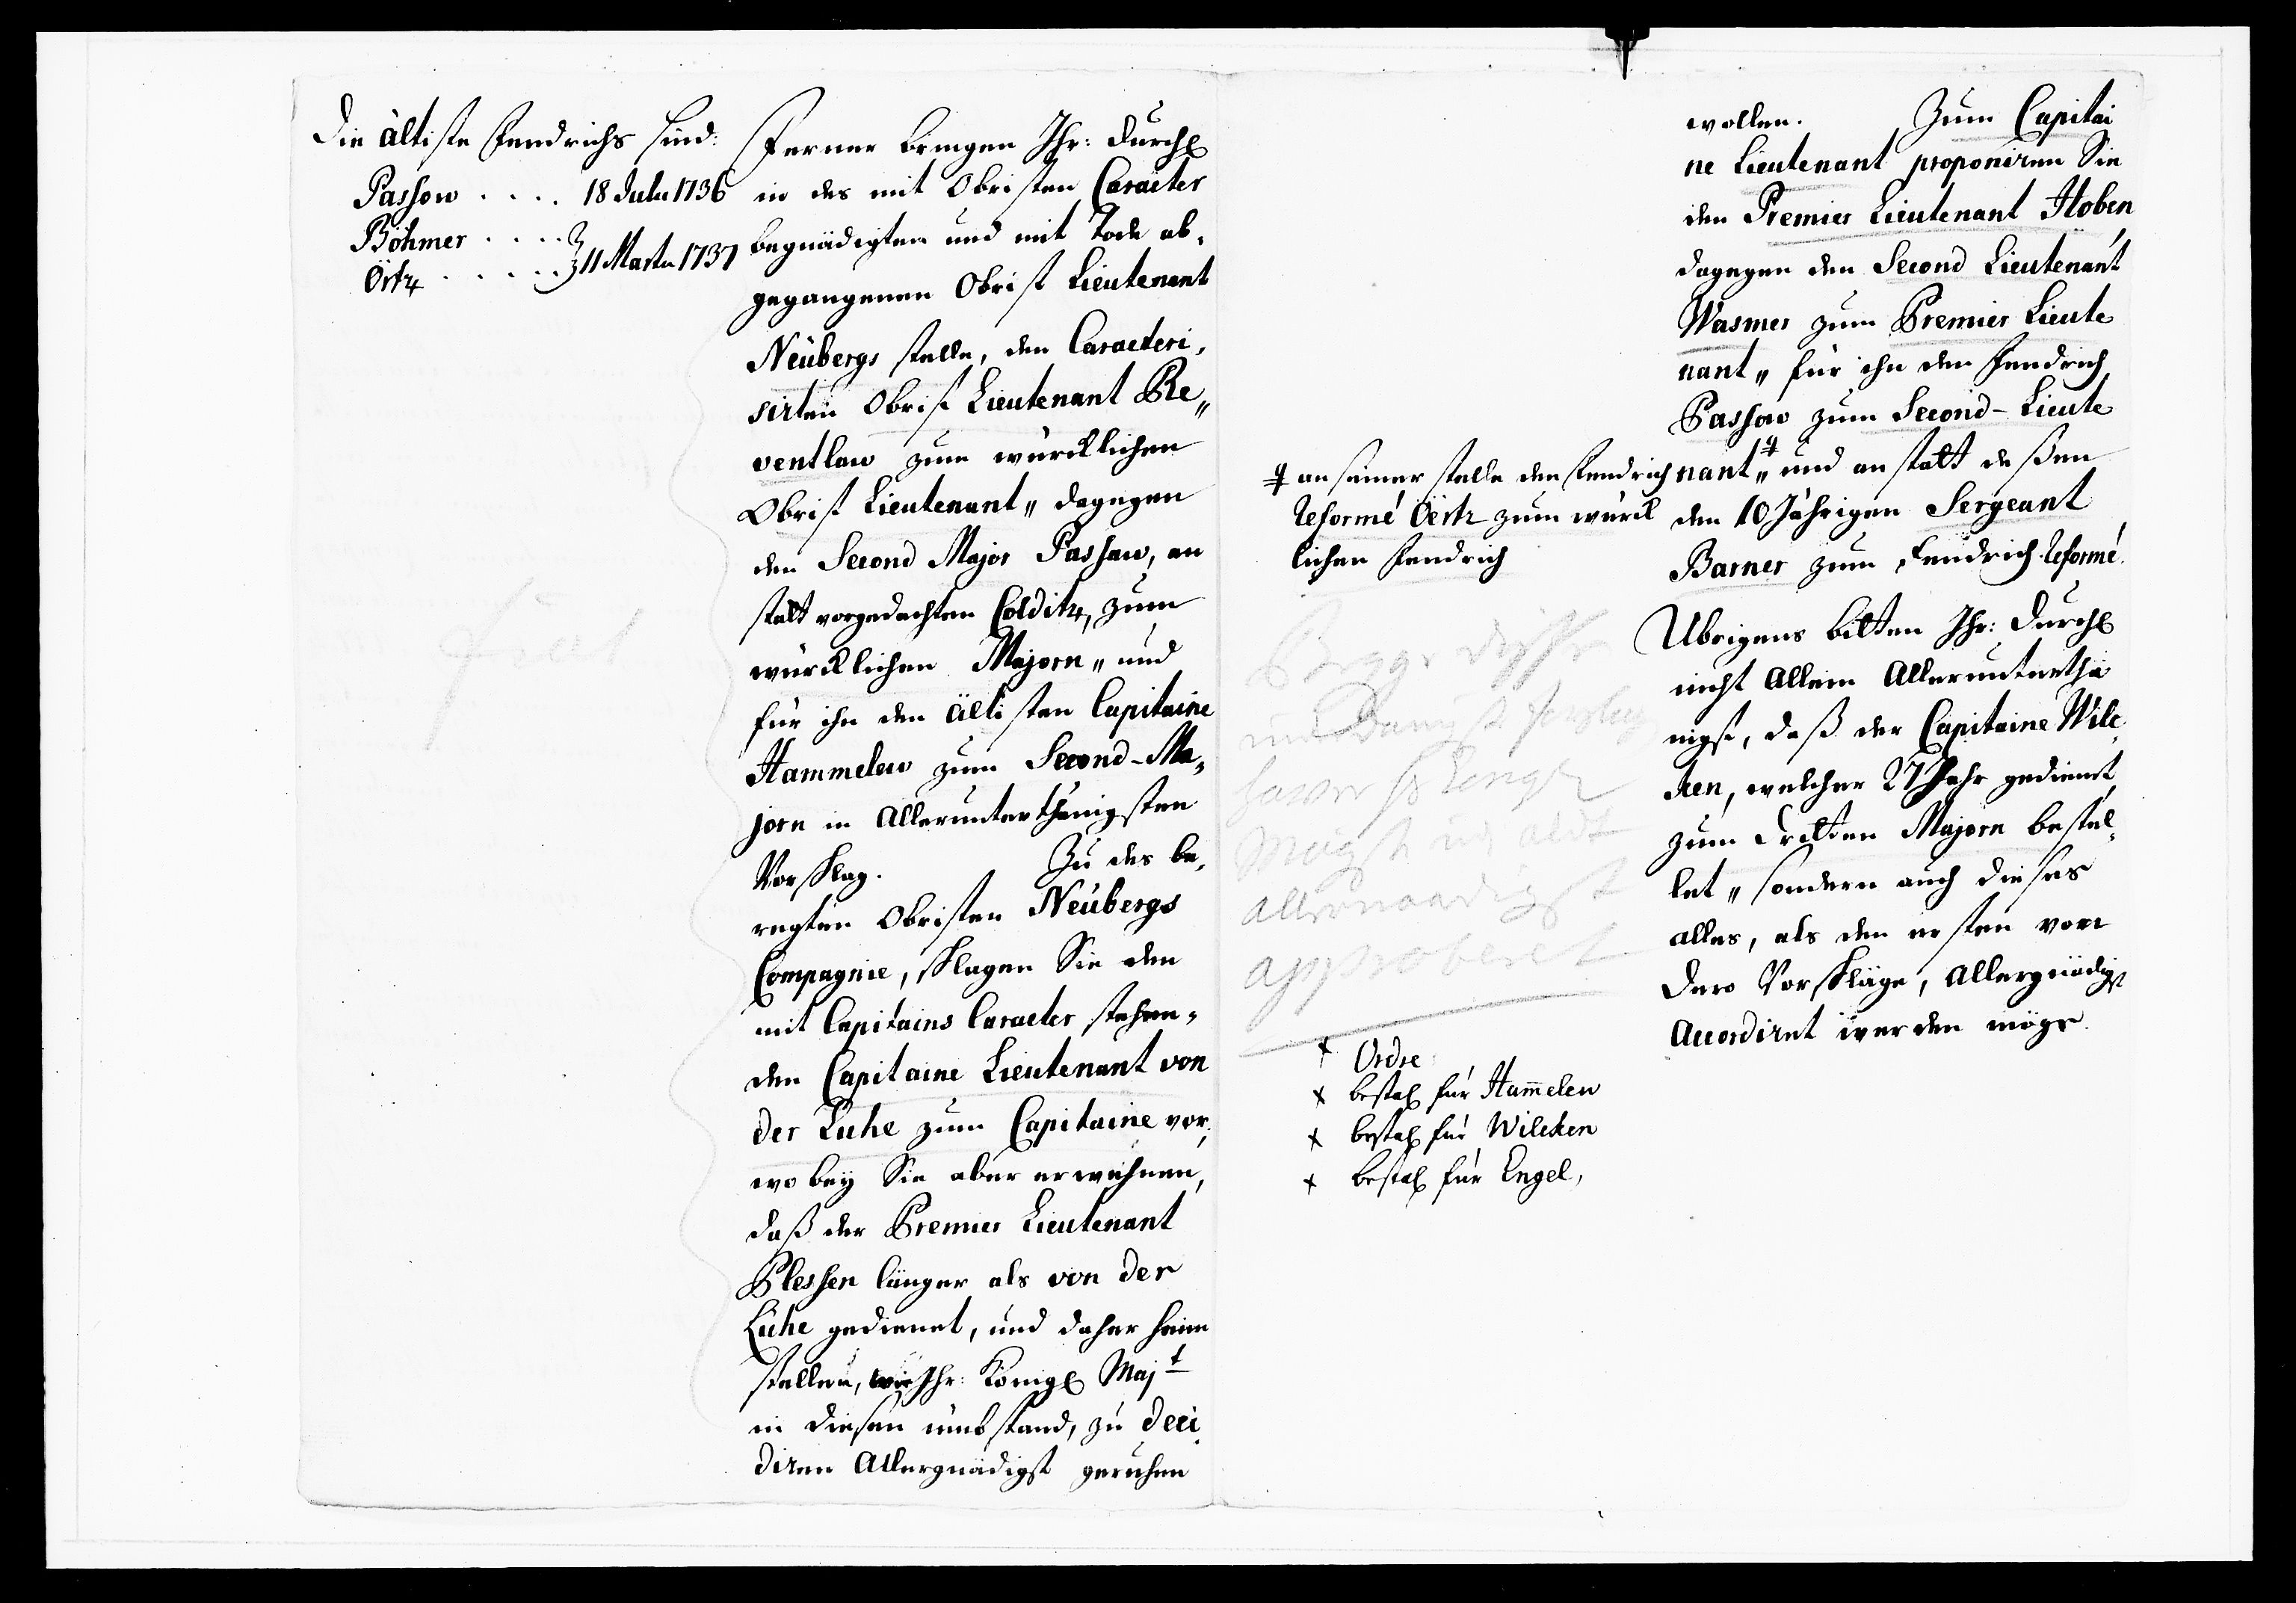 Die ältiste Fendrichs sind:
Passow . . . . 18 July 1736
Böhmer . . . .
Örtz . . . . . 11 Marty 1737
Ferner bringen Ihr: Durchl
in des mit Obristen Caracter
begnädigten und mit Tode ab,
gegangenen Obrist Lieutenant
Neubergs stelle, den Caracteri,
sirten Obrist Lieutenant Re„
ventlau zum würcklichen
Obrist Lieutenant„ dagegen
den Second Major Passau, an
statt vorgedachten Colditz, zum
würcklichen Majorn„ und
für ihn den ältisten Capitaine
Hammeleu zum Second-Ma„
jorn in Allerunterthänigsten
Vorschlag. Zu des be,
regten Obristen Neubergs
Compagnie, schlagen Sie den
mit Capitains Caracter stehen,
den Capitaine Lieutenant von
der Lühe zum Capitaine vor,
wobey Sie aber erwehnen,
daß der Premier Lieutenant
Plessen länger als von der
Lühe gedienet, und daher heim
stellen, wie Ihr: Königl Majt
in diesen umbstand, zu deci
diren Allergnädigst geruhen
wollen. Zum Capitai
ne Lieutenant proponiren Sie
den Premier Lieutenant Hoben
dagegen den Second Lieutenant
Wasmer zum Premier Lieute
nant„ für ihn den Fendrich
Passow zum Second-Lieute
nant„ ‡ und an statt deßen
den 10 Jährigen Sergeant
Barner zum Fendrich Reformé.
Übrigens bitten Ihr: Durchl
nicht Allein Alleruntertha
nigst, daß der Capitaine Wilc
ken, welcher 27 Jahr gedienet,
zum Dritten Majorn bestel,
let„ sondern auch dieses
alles, als den ersten von
Dero Vorschläge, Allergnädigst
Accordiret werden möge.
‡ an seiner stelle den Fendrich
Reformé Öertz zum würck
lichen Fendrich
Begge disse
allernaadigst
approberet
x Ordre
x bestal für Ham̄eleu
x bestal für Wilcken
x bestal für Engel,